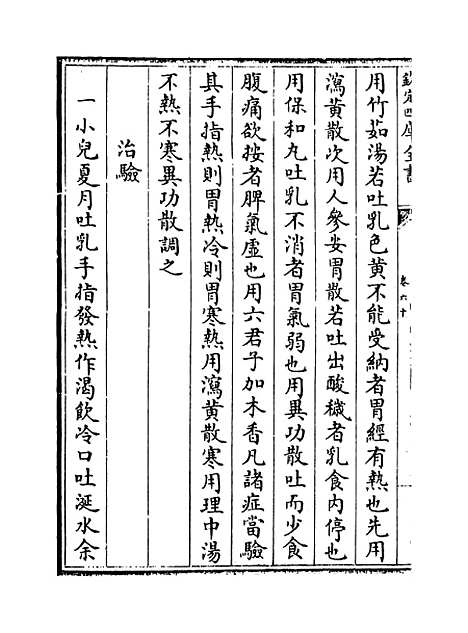 欽定四庫全書
卷六十
用竹茹湯若吐乳色黃不能受納者胃經有熱也先用
瀉黃散次用人參安胃散若吐出酸穢者乳食内停也
用保和丸吐乳不消者胃氣弱也用異功散吐而少食
腹痛欲按者脾氣虛也用六君子加木香凡諸症當驗
其手指熱則胃熱冷則胃寒熱用瀉黃散寒用理中湯
不熱不寒異功散調之
治驗
一小兒夏月吐乳手指發熱作渴飲冷口吐涎水余